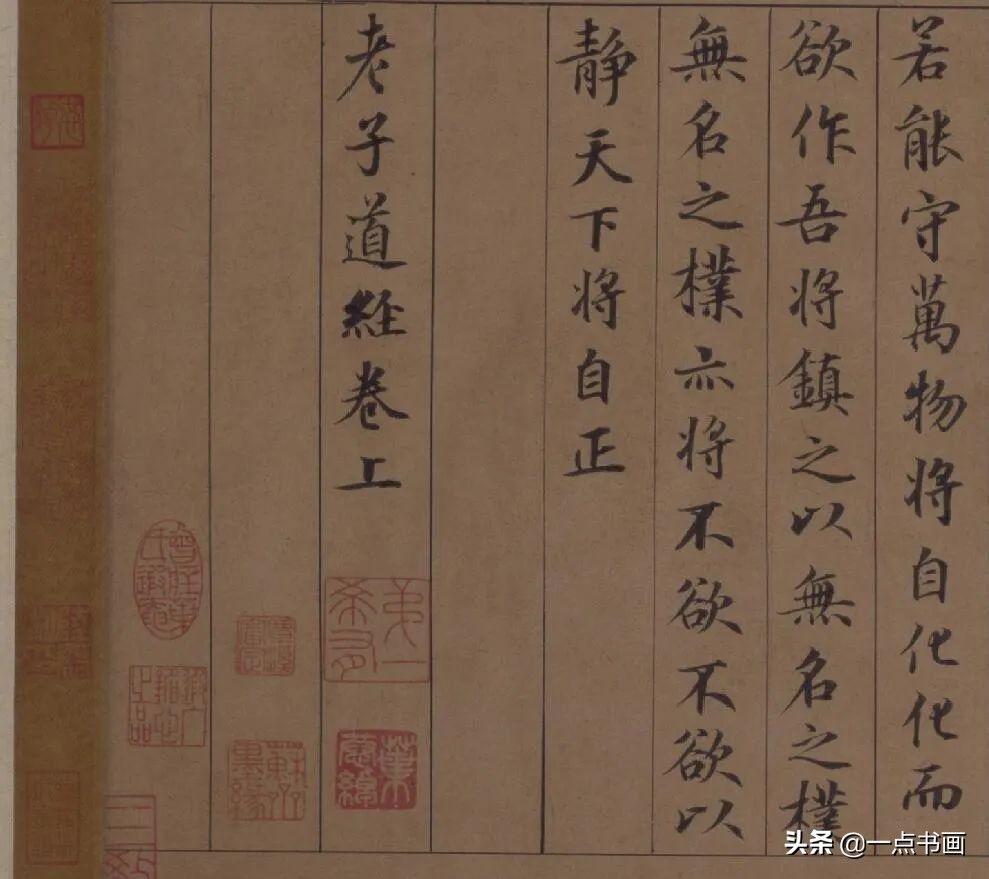 若能守萬物将自化化而
欲作吾将鎮之以無名之樸
無名之樸亦将不欲不欲以
静天下将自正
老子道経卷上
弟一希有
葉恭綽
蘇齋墨緣
头条 @一点书画